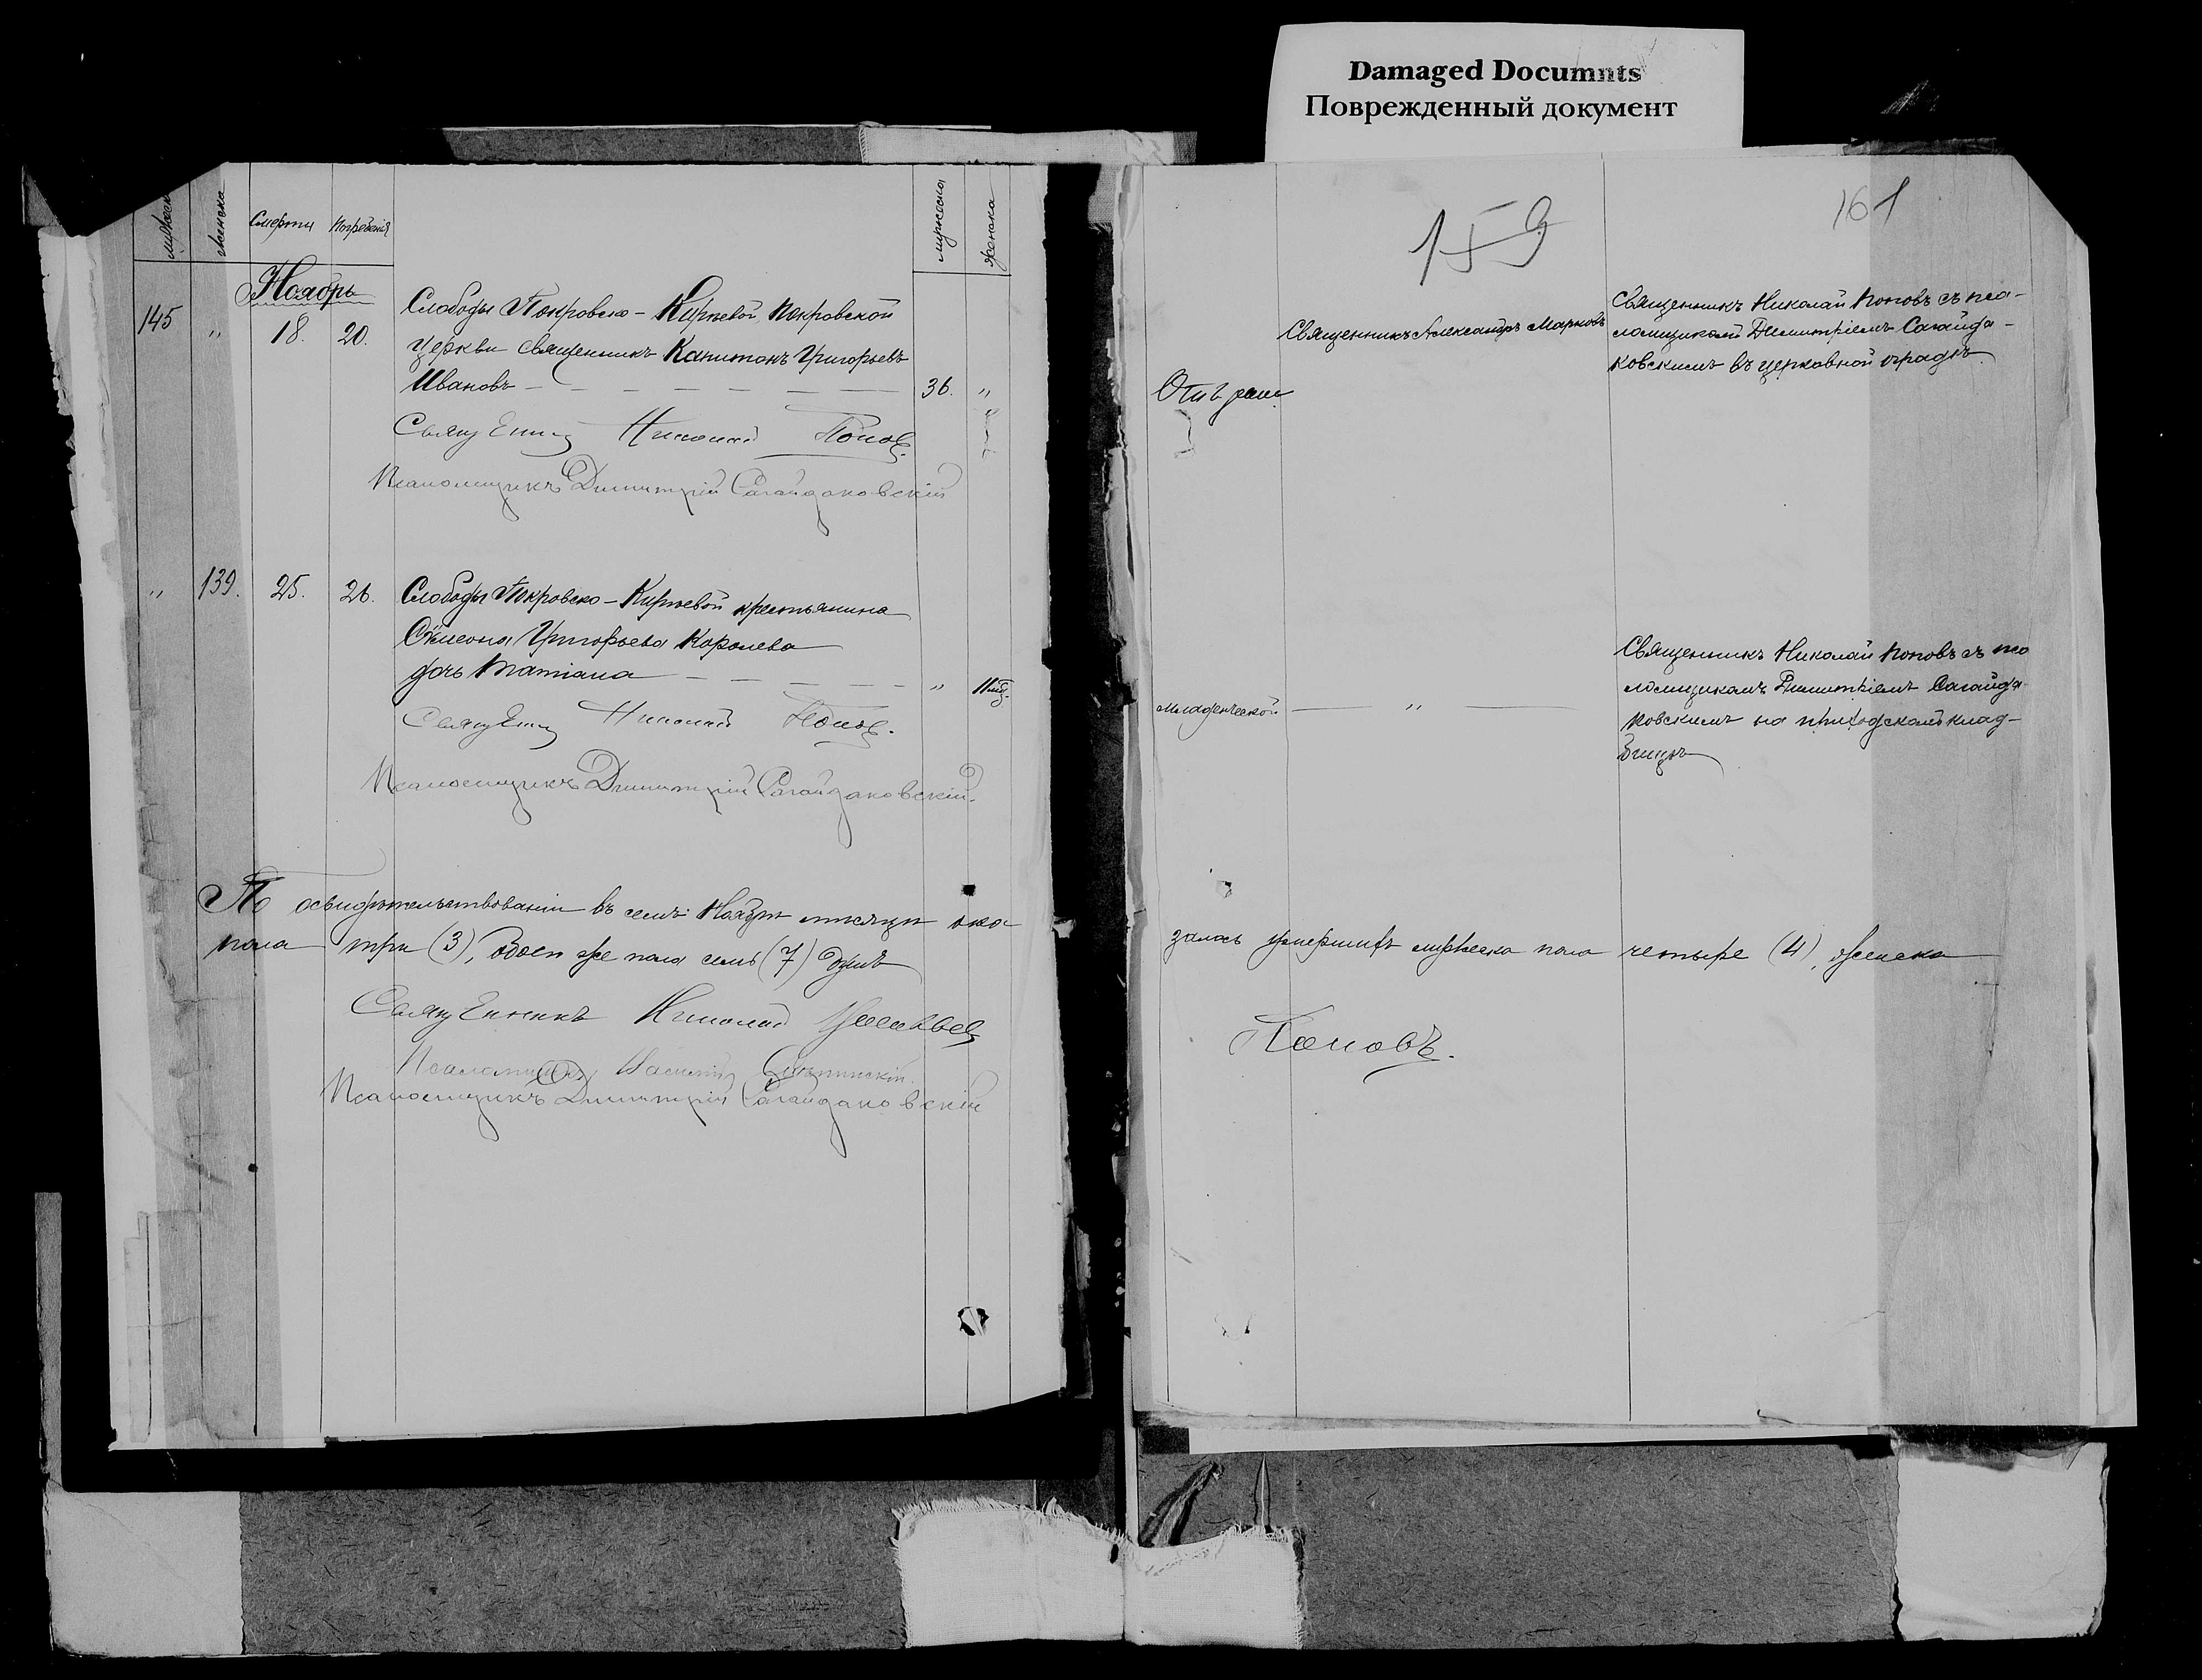 Damaged Documnts
Поврежденный документ
мужеска
женска
Смерти
Погребенія
мужеска
женска
Ноябрь
145 „ 18. 20.
Слободы Покровско-Кирѣевой, Покровской
церкви священникъ Капитонъ Григорьевъ
Ивановъ 36. „
Священникъ Николай Поповъ.
Псаломщикъ Димитрій Сагайдаковскій
„ 139. 25. 26.
Слободы Покровско-Кирѣевой крестьянина
Сѷмеона Григорьева Королева
дочь Татіана „ 11 мц.
Священникъ Николай Поповъ.
Псаломщикъ Димитрій Сагайдаковскій.
По освидѣтельствованіи въ семъ Ноябрѣ мѣсяцѣ ока-
пола три (3), обоего же пола семь (7) душъ
Священникъ Николай
Псаломщикъ Василій
Псаломщикъ Димитрій Сагайдаковскій
159
161
Отъ
Священникъ Александръ Марковъ
Священникъ Николай Поповъ съ пса-
ломщикомъ Димитріемъ Сагайда-
ковскимъ въ церковной оградѣ.
Младенческой „
Священникъ Николай Поповъ съ пса
ломщикомъ Димитріемъ Сагайда
ковскимъ на приходскомъ клад-
бищѣ
залось умершихъ мужеска пола четыре (4), женска
Поповъ.